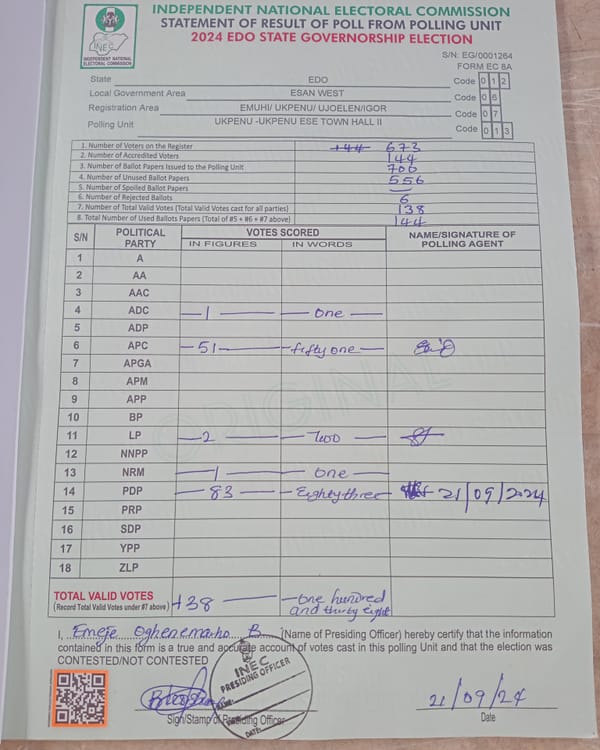 INDEPENDENT NATIONAL ELECTORAL COMMISSION
STATEMENT OF RESULT OF POLL FROM POLLING UNIT
2024 EDO STATE GOVERNORSHIP ELECTION
INEC
INDEPENDENT NATIONAL ELECTORAL COMMISSION
S/N: EG/0001264
FORM EC 8A
State EDO Code 0 1 2
Local Government Area ESAN WEST Code 0 6
Registration Area EMUHI/ UKPENU/ UJOELEN/IGOR Code 0 7
Polling Unit UKPENU -UKPENU ESE TOWN HALL II Code 0 1 3
1. Number of Voters on the Register 144 673
2. Number of Accredited Voters 144
3. Number of Ballot Papers Issued to the Polling Unit 700
4. Number of Unused Ballot Papers 556
5. Number of Spoiled Ballot Papers —
6. Number of Rejected Ballots 6
7. Number of Total Valid Votes (Total Valid Votes cast for all parties) 138
8. Total Number of Used Ballots Papers (Total of #5 + #6 + #7 above) 144
S/N POLITICAL PARTY VOTES SCORED NAME/SIGNATURE OF POLLING AGENT
IN FIGURES IN WORDS
1 A
2 AA
3 AAC
4 ADC 1 one
5 ADP
6 APC 51 fifty one
7 APGA
8 APM
9 APP
10 BP
11 LP 2 Two
12 NNPP
13 NRM 1 one
14 PDP 83 Eighty three 21/09/2024
15 PRP
16 SDP
17 YPP
18 ZLP
ORIGINAL
TOTAL VALID VOTES 138 one hundred
(Record Total Valid Votes under #7 above) and thirty eight
I, Emeje Oghenemarho B (Name of Presiding Officer) hereby certify that the information
contained in this form is a true and accurate account of votes cast in this polling Unit and that the election was
CONTESTED/NOT CONTESTED
INEC
PRESIDING OFFICER
NAME:
DATE:
21/09/24
Sign/Stamp of Presiding Officer Date